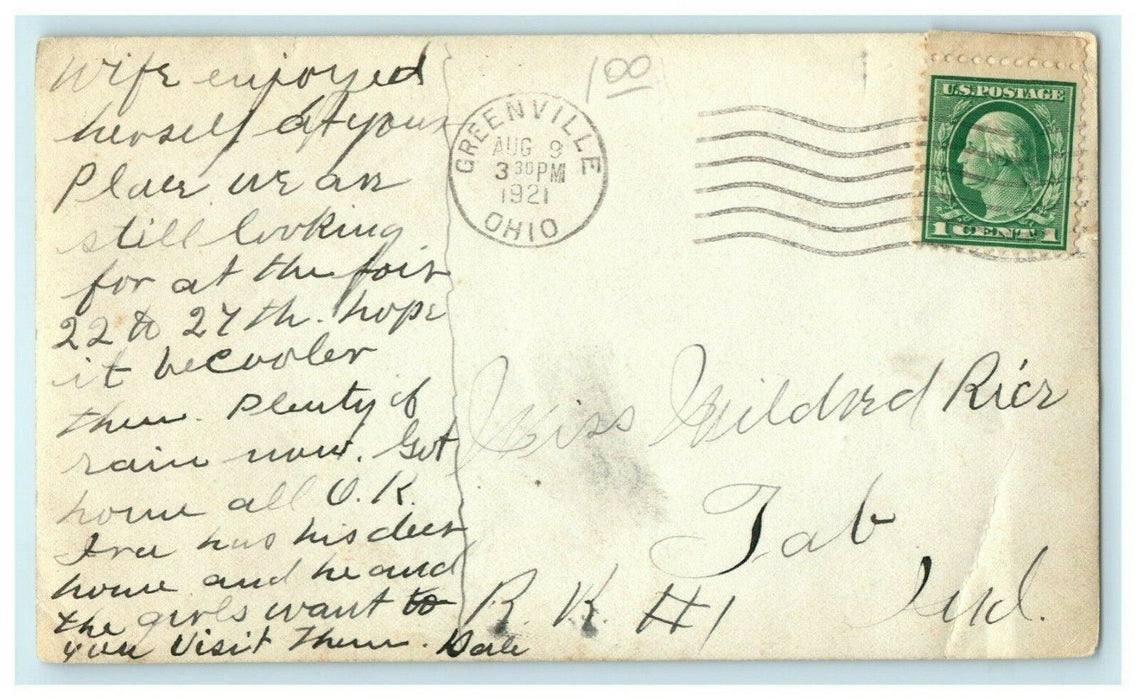 Wife enjoyed
herself at your
Place we are
still looking
for at the fair
22 to 27th. hope
it be cooler
then. Plenty of
rain now. Got
home all O.K.
Ira has his deer
home and he and
the girls want to
you Visit Them. Dale
1 00
GREENVILLE
AUG 9
3 30 PM
1921
OHIO
U.S. POSTAGE
1 CENT 1
Miss Mildred Rice
Tab
Ind.
R. R. #1